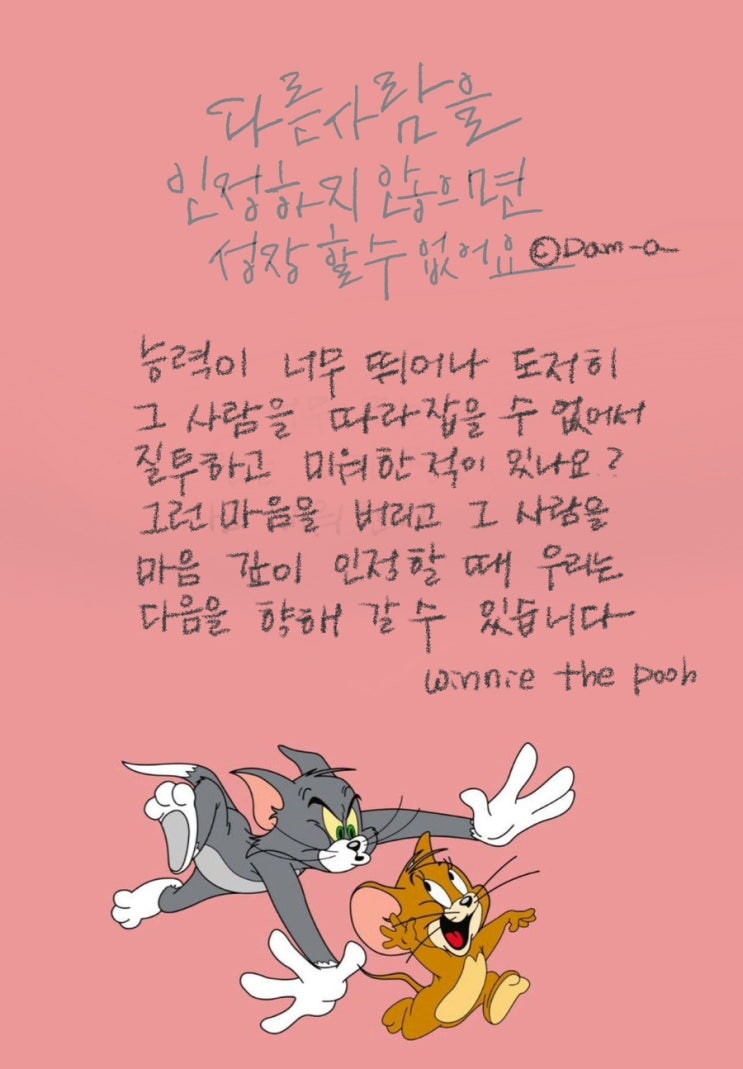 다른사람을
인정하지 않으면
성장 할수 없어요 ©Dam-a
능력이 너무 뛰어나 도저히
그 사람을 따라잡을 수 없어서
질투하고 미워한적이 있나요?
그런 마음을 버리고 그 사람을
마음 깊이 인정할 때 우리는
다음을 향해 갈 수 있습니다
winnie the pooh